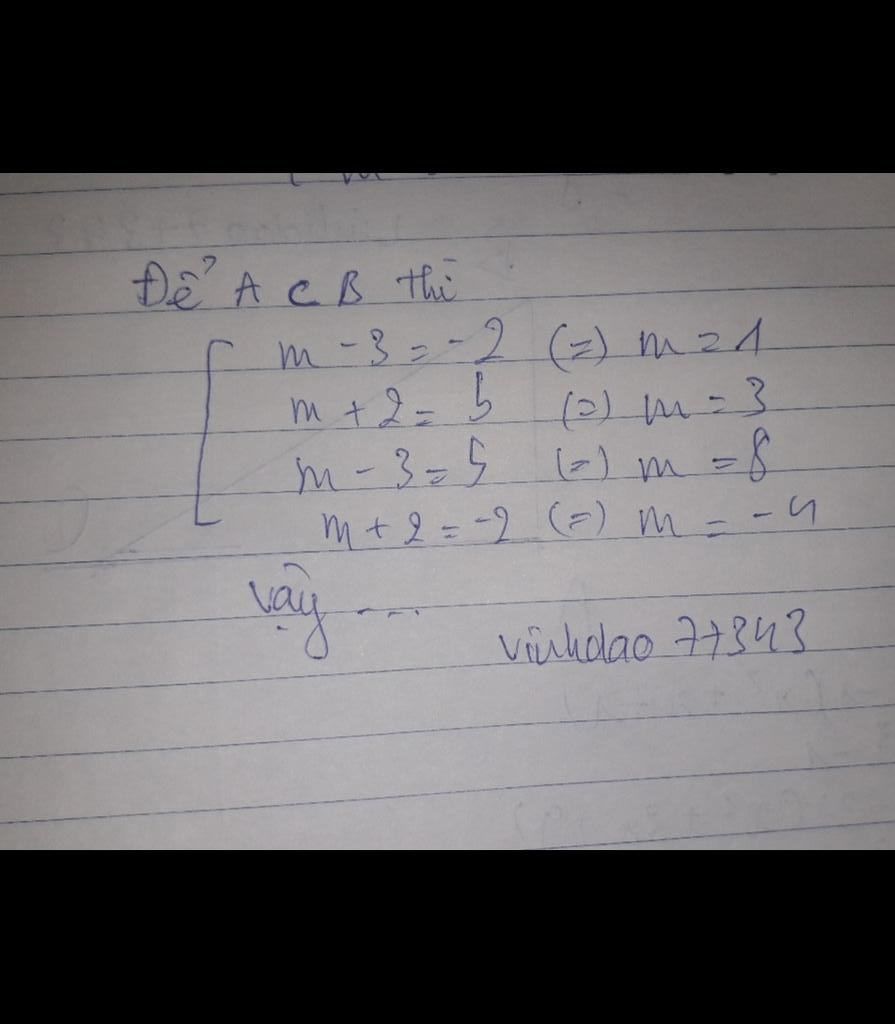 Để A ⊂ B thì
m - 3 = -2 (=) m = 1
m + 2 = 5 (=) m = 3
m - 3 = 5 (=) m = 8
m + 2 = -2 (=) m = -4
vậy ....
vinhdao 77343